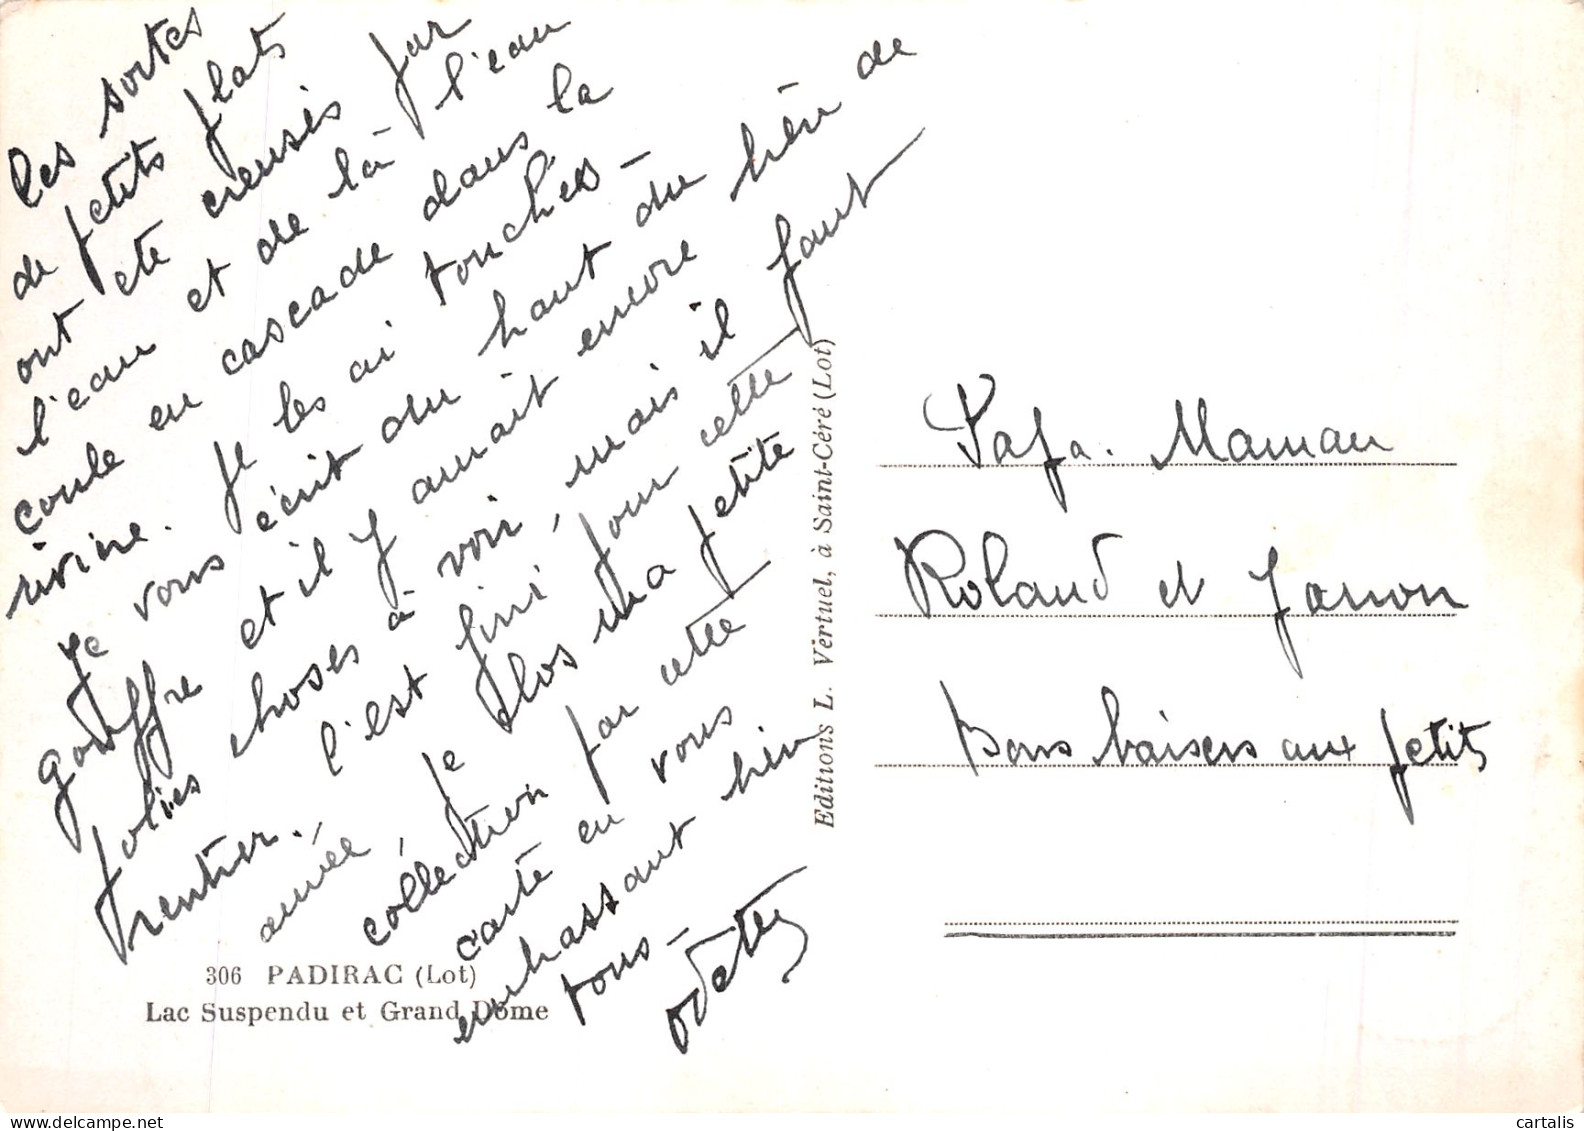 les sortes
de petits plats
ont été creusés par
l'eau et de là l'eau
coule en cascade dans la
rivière. Je les ai touchés -
Je vous écrit du haut du bien de
gouffre et il y aurait encore
jolies choses à voir, mais il faut
rentrer. c'est fini pour cette
année, je clos ma petite
collection par cette
carte en vous
embrassant bien
tous -
Odette
306 PADIRAC (Lot)
Lac Suspendu et Grand Dome
Editions L. Vertuel, à Saint-Céré (Lot)
Papa. Maman
Roland et
Bons baisers aux petits
cartalis